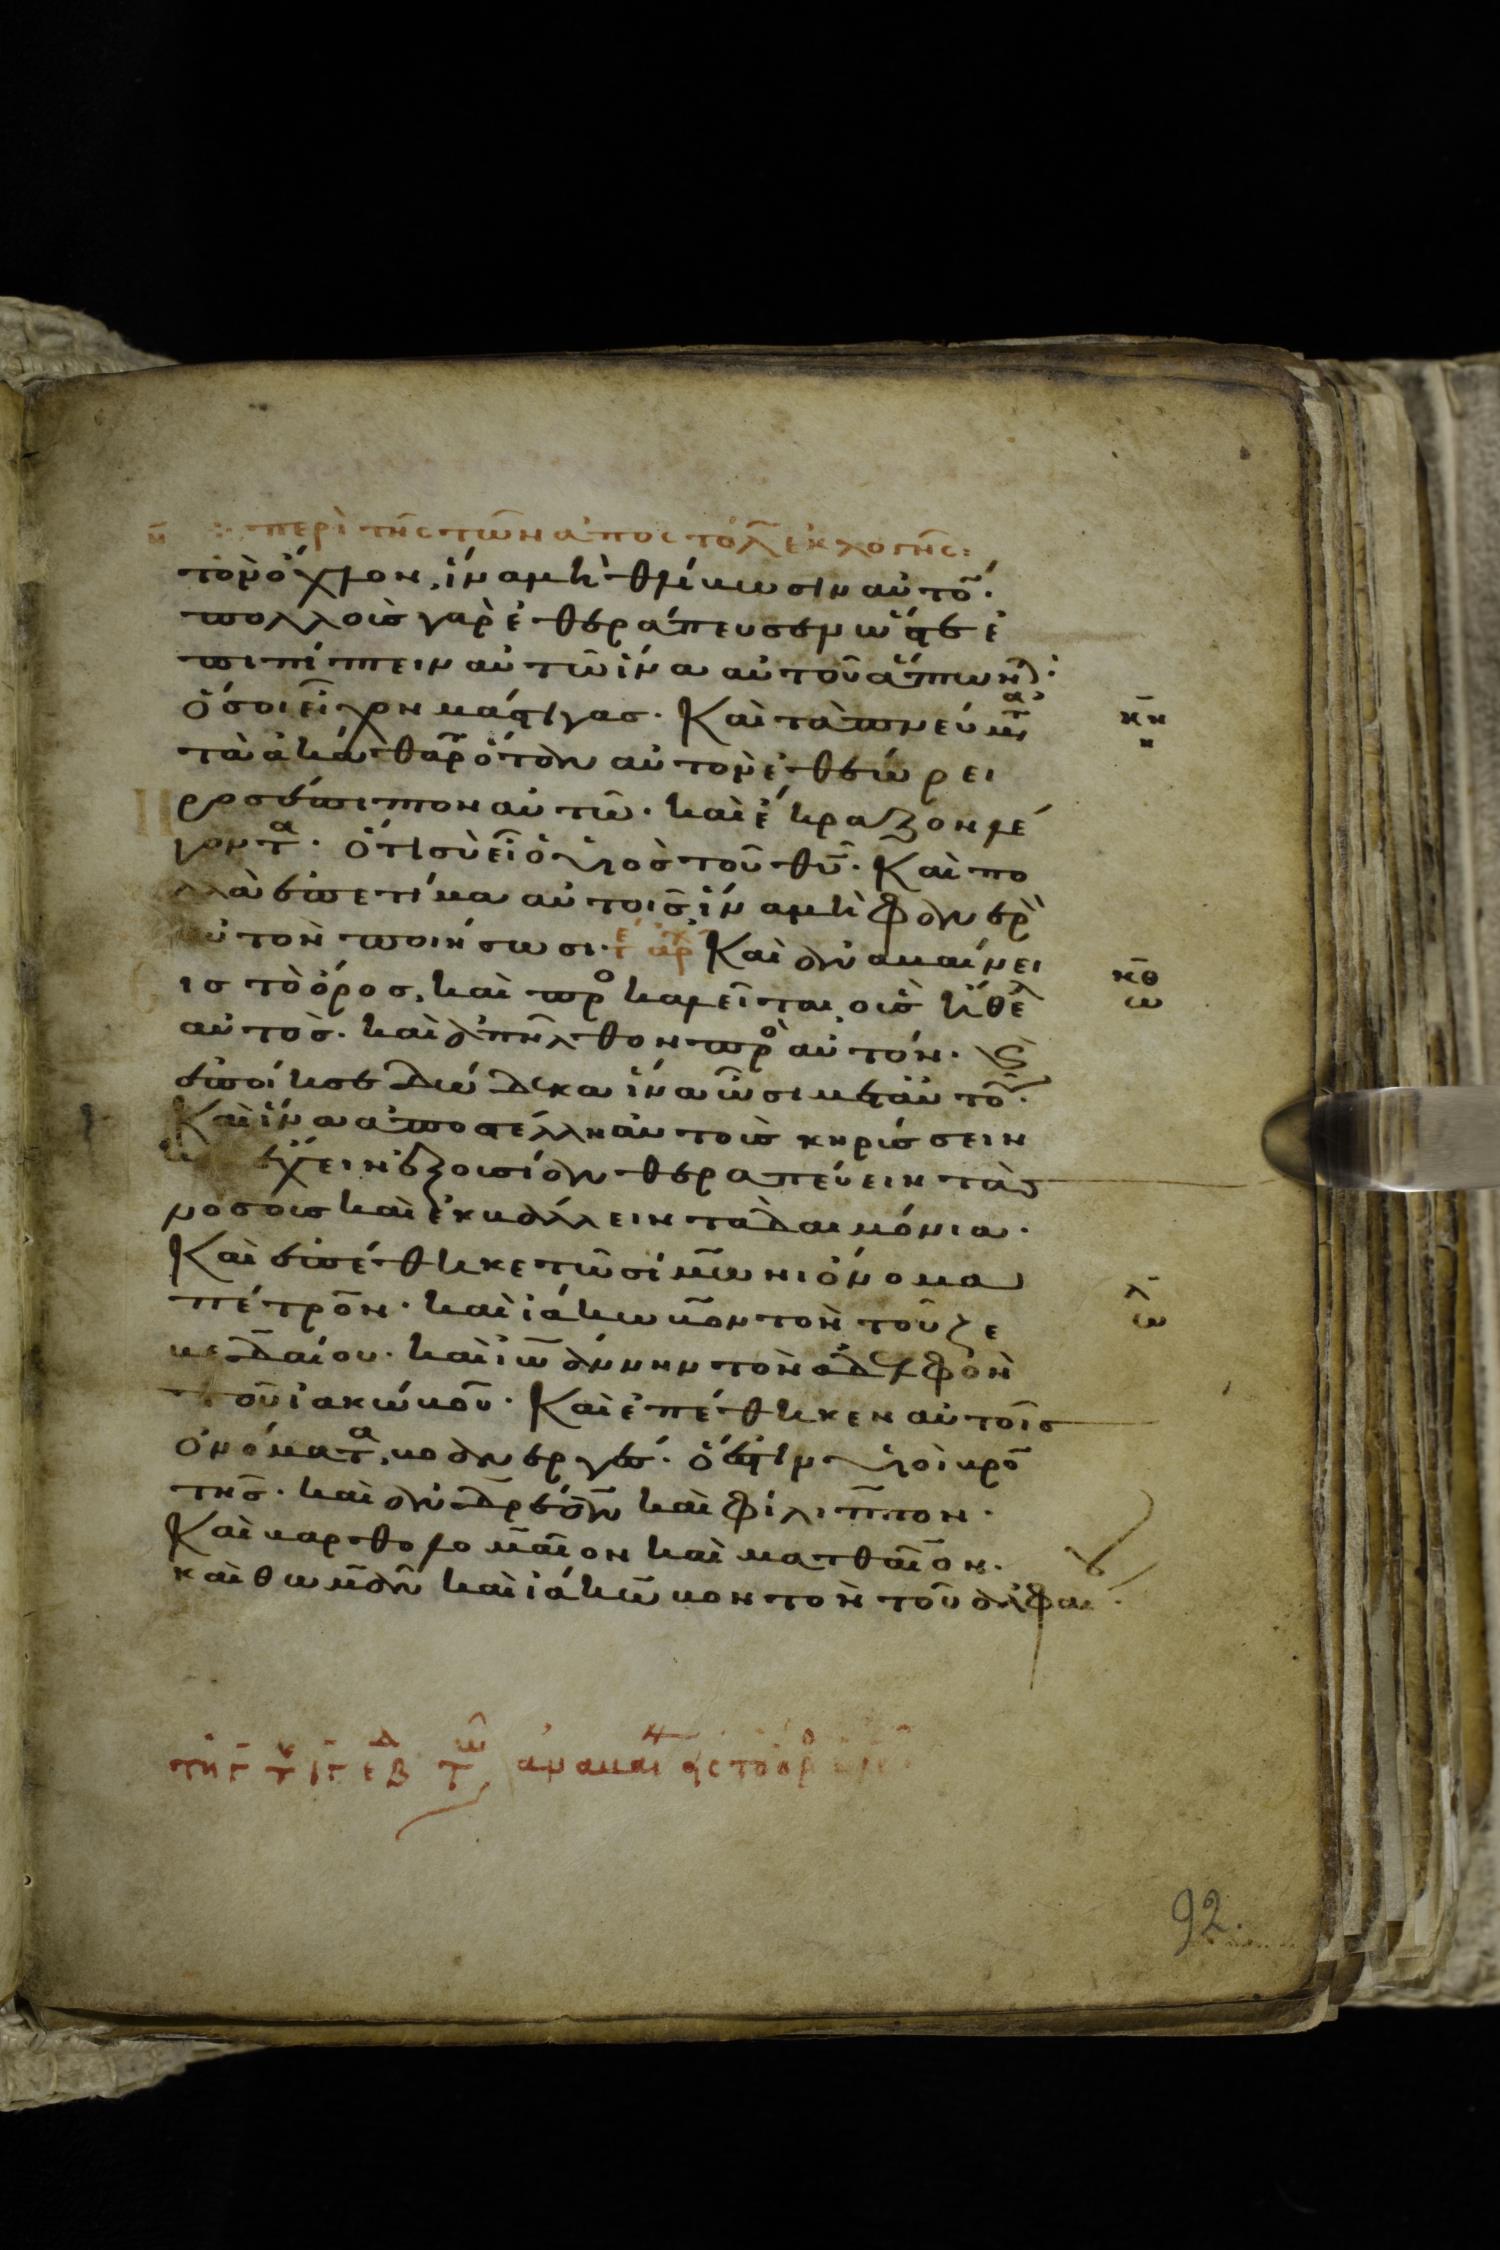 η ·:· περὶ τῆς τῶν ἀποστόλ ἐκλογῆς:
τὸν ὄχλον, ἵνα μὴ θλίβωσιν αὐτό·
πολλοὺς γὰρ ἐθεράπευσεν ὥστε ἐ
πιπίπτειν αὐτῶ ἵνα αὐτοῦ ἅπων·
ὅσοι εἶχον μάστιγας· Καὶ τὰ πνεύματα
τὰ ἀκάθαρ ὅταν αὐτὸν ἐθεώρει
προσέπιπτον αὐτῶ· καὶ ἔκραζον λέ
γοντα· ὅτι σὺ εἶ ὁ υἱὸς τοῦ θυ· Καὶ πο
λλὰ ἐπετίμα αὐτοῖς ἵνα μὴ φανερὸ
αὐτὸν ποιήσωσι· Καὶ ἀναβαίνει
ις τὸ ὄρος, καὶ προκαλεῖται οὓς ἤθελ
αὐτός· καὶ ἀπῆλθον πρὸ αὐτόν· κ
ἐποίησε δώδεκα ἵνα ὦσι μεταὐτοῦ·
Καὶ ἵνα ἀποστέλλη αὐτοὺς κηρίσσειν
κ ἔχειν ἐξουσίαν θεραπεύειν τὰς
νόσους καὶ ἐκβάλλειν τὰ δαιμόνια·
Καὶ ἐπέθηκε τῶ σίμωνι ὄνομα
πέτρον· καὶ ἰάκωβον τὸν τοῦ ζε
βεδαίου· καὶ ἰωάννην τὸν ἀδελφὸν
τοῦ ἰακώβου· Καὶ ἐπέθηκεν αὐτοῖς
ὀνόματα, βοανεργές· ὅ ἐστιν υἱοὶ βρο
τῆς· καὶ ἀνδρέαν καὶ φίλιππον·
Καὶ βαρθολομαῖον καὶ ματθαῖον·
καὶ θωμᾶν καὶ ἰάκωβον τὸν τοῦ ἀλφαι
κη
η
κθ
ω
λ
ω
ἀναβαι
92.